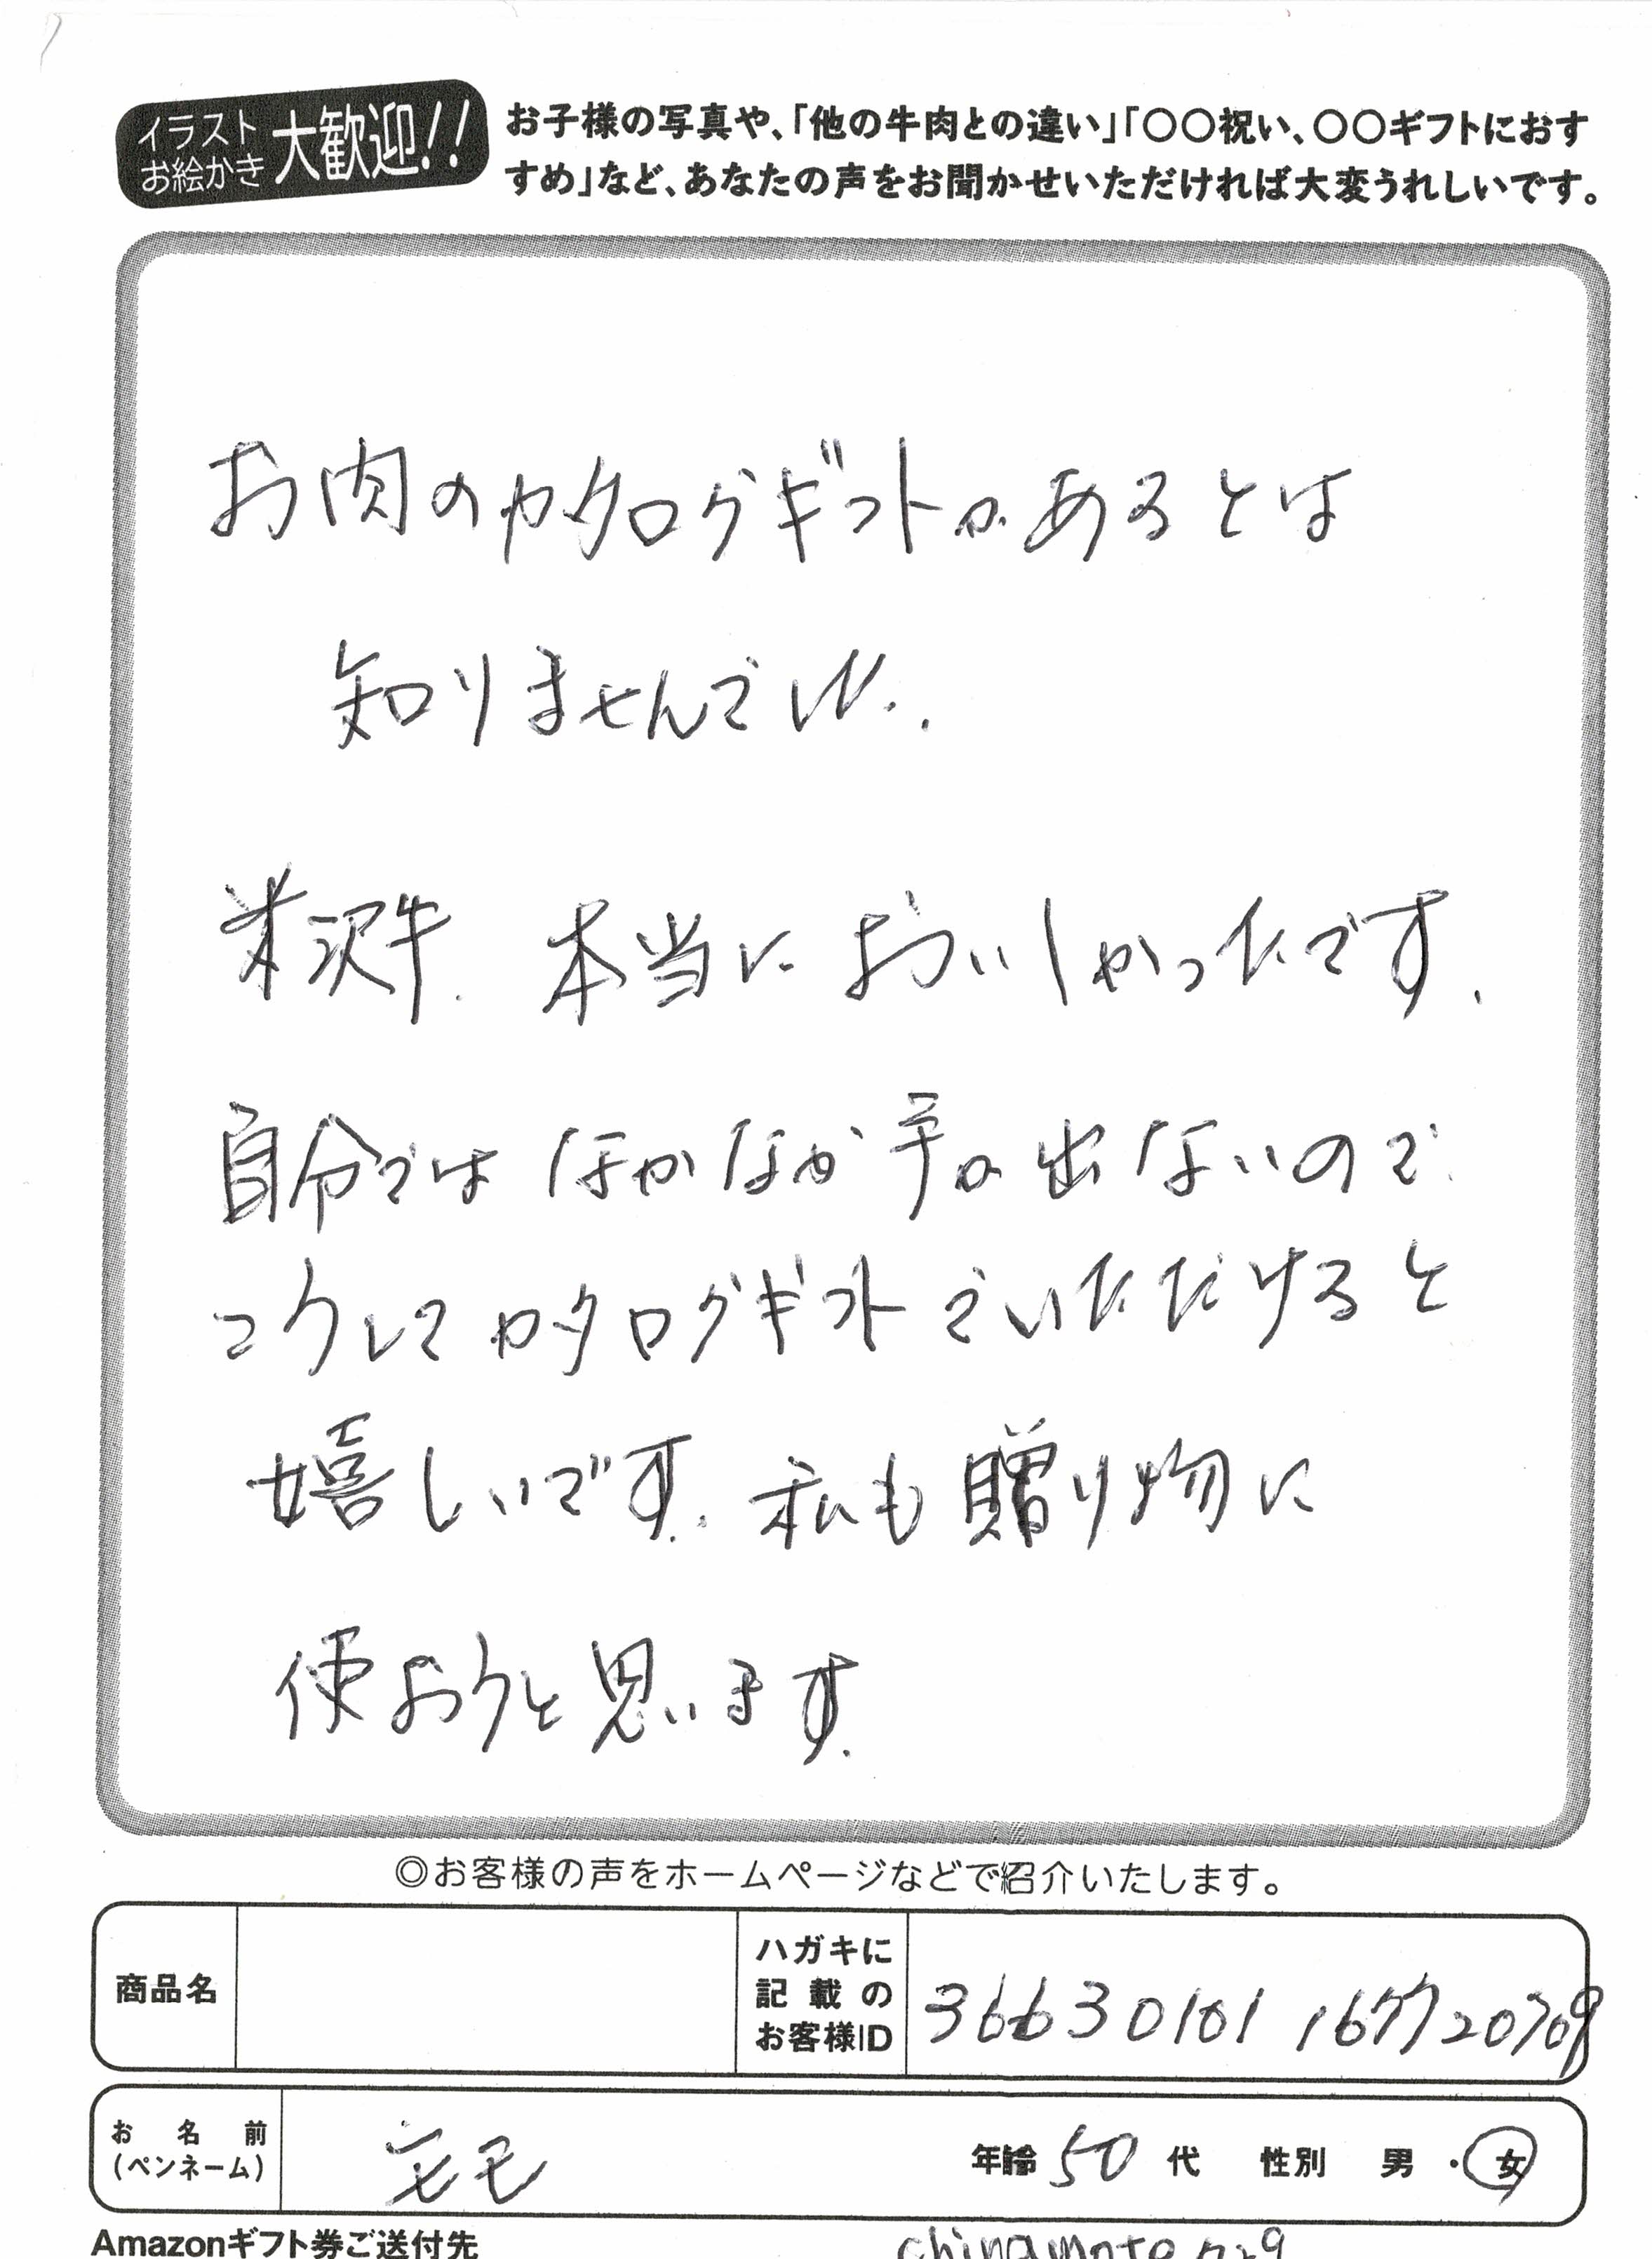 イラスト
お絵かき
大歓迎!!
お子様の写真や、「他の牛肉との違い」「〇〇祝い、〇〇ギフトにおす
すめ」など、あなたの声をお聞かせいただければ大変うれしいです。
お肉のカタログギフトがあるとは
知りませんでした.
米沢牛. 本当においしかったです.
自分ではなかなか手が出ないので.
こうしてカタログギフトでいただけると
嬉しいです. 私も贈り物に
使おうと思います.
◎お客様の声をホームページなどで紹介いたします。
商品名
ハガキに
記載の
お客様ID
36630101
お名前
(ペンネーム)
モモ
年齢 50 代 性別 男 ・ 女
Amazonギフト券ご送付先